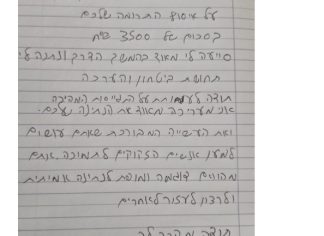 על איסוף התרומה שלכם
בסכום של 3500 ש״ח
סייעה לי מאוד בהמשך הדרך ונתנה לי
תחושת ביטחון והערכה
תודה על התגייסות המהירה
אני מעריכה מאוד את הנתינה שלכם
ואת העשייה המבורכת שאתם עושים
למען אנשים הזקוקים לתמיכה. אתם
מהווים דוגמה ומופת לנתינה אמיתית
ולרצון לעזור לאחרים
תודה